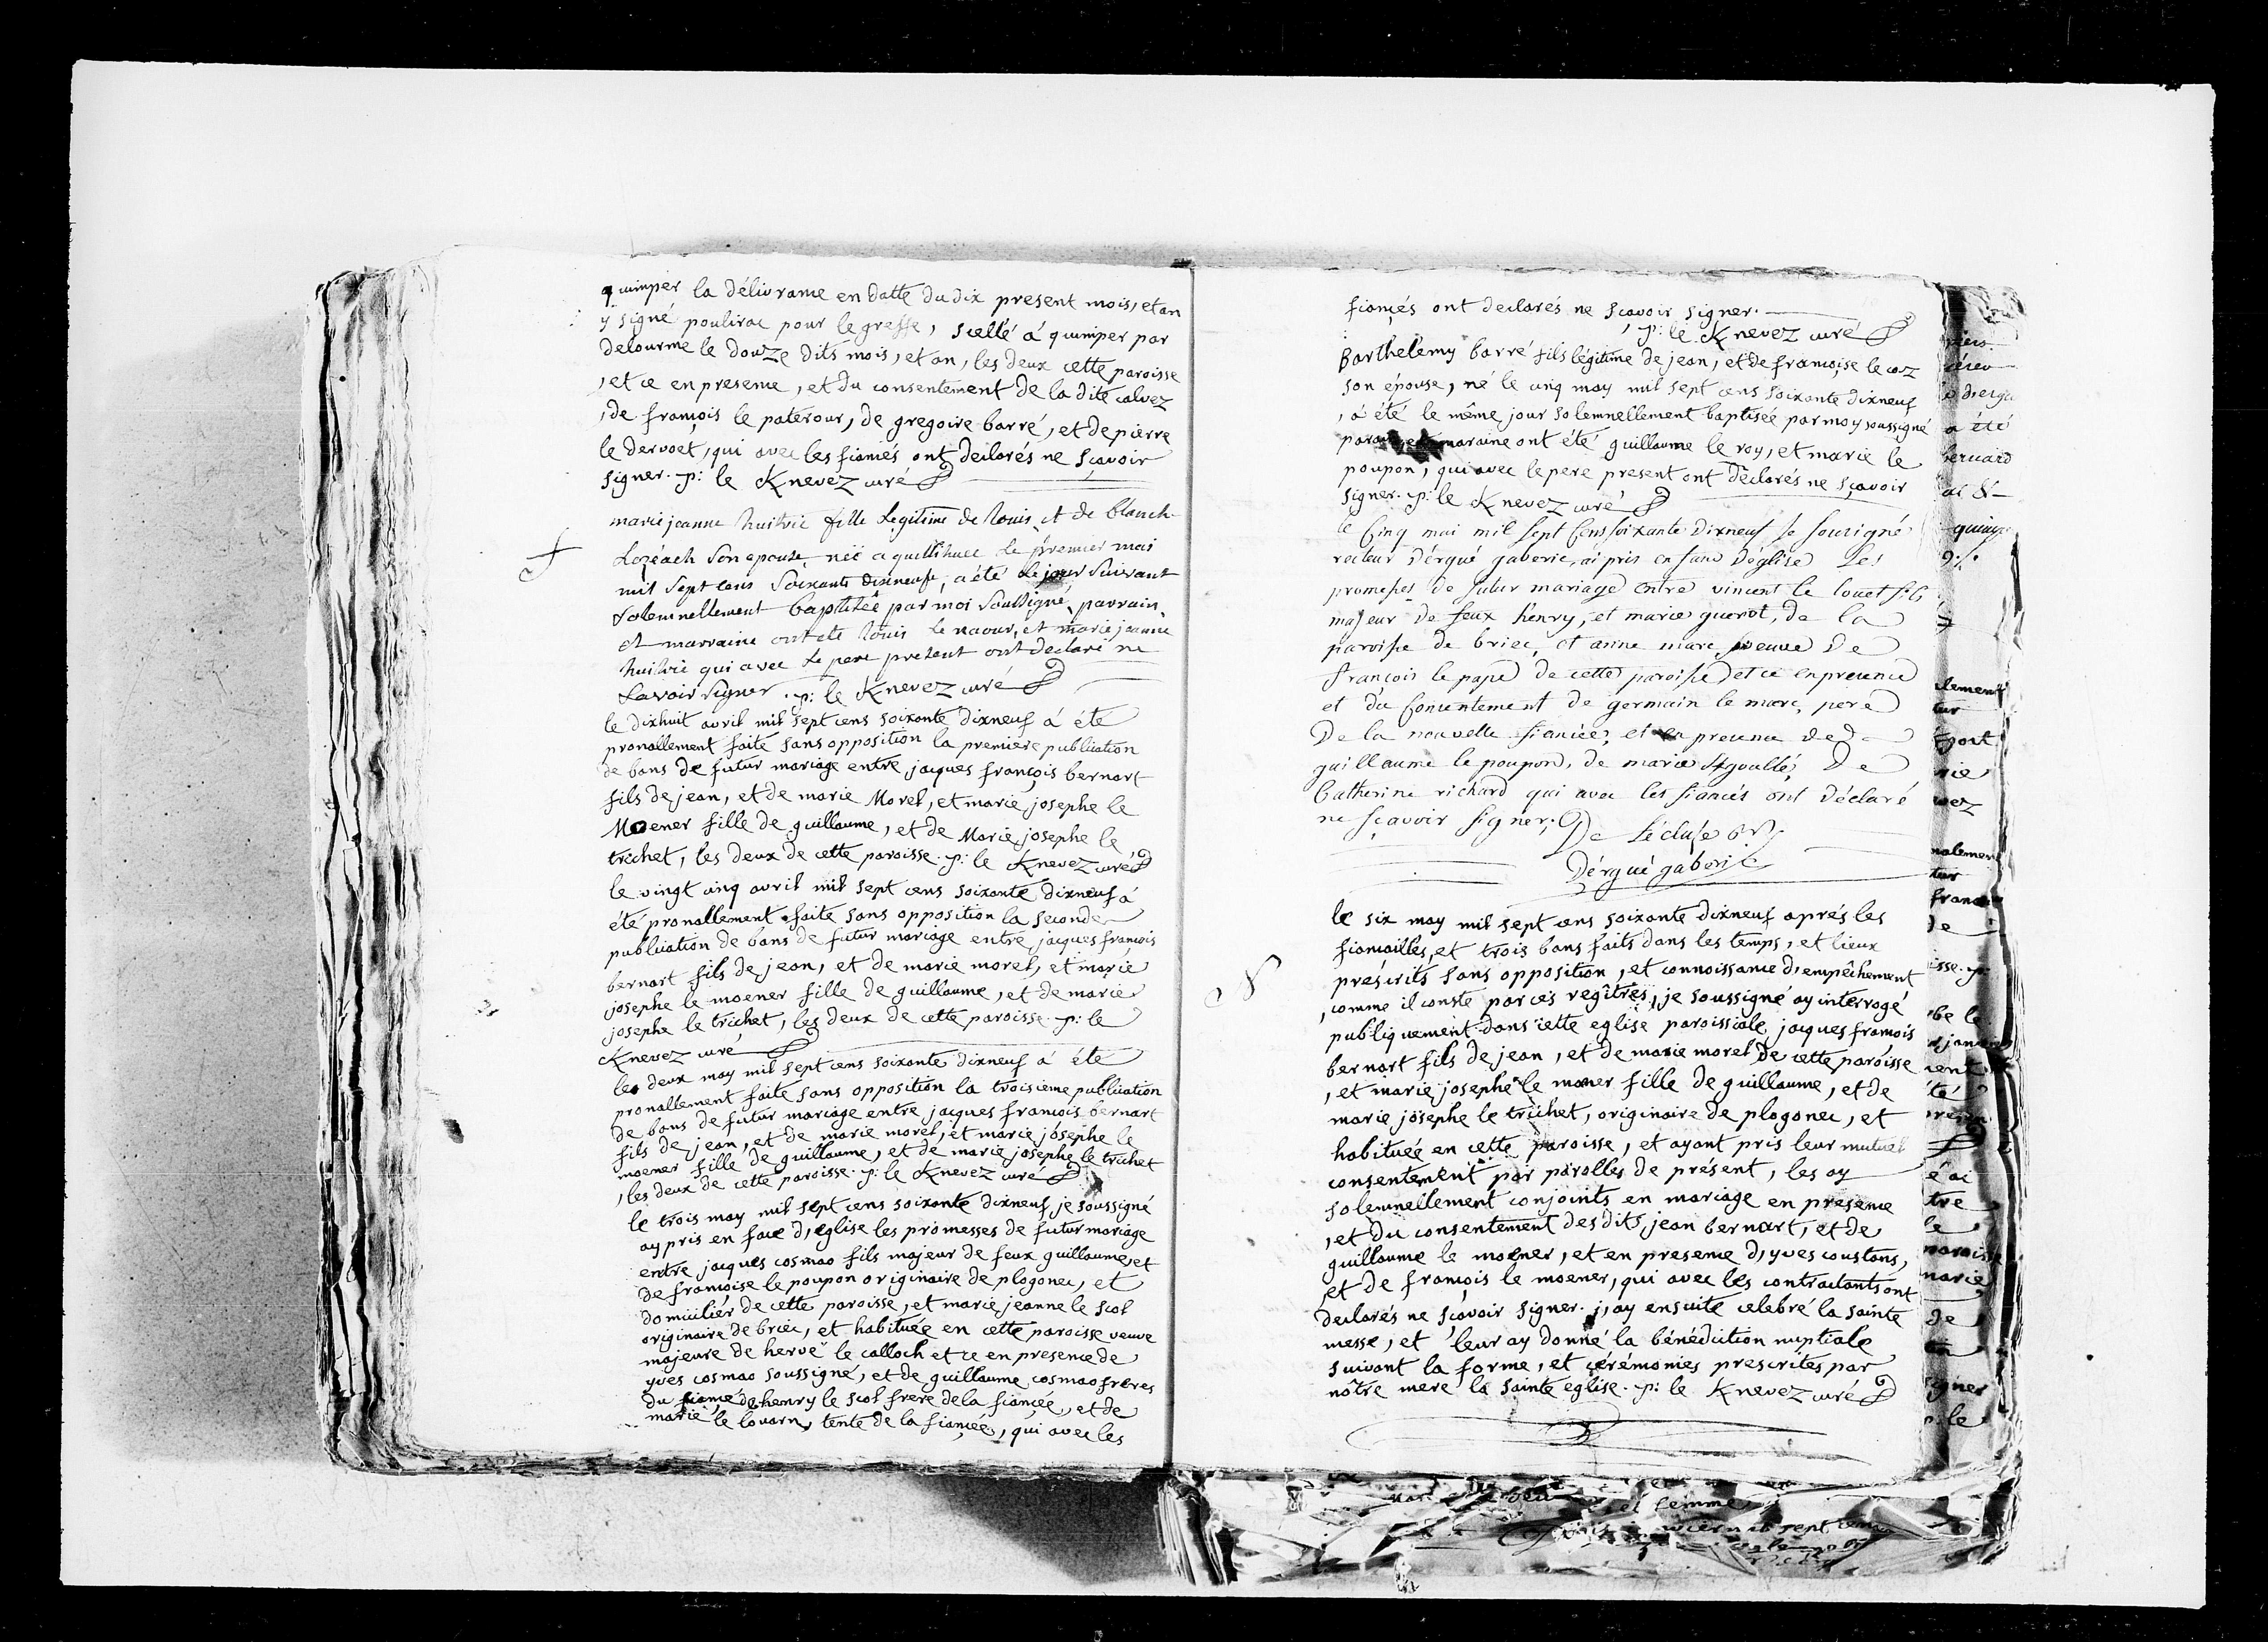 quimper la délivrance en datte du dix present mois, et an
y signé poulirac pour le greffe, scellé á quimper par
delourme le douze dits mois, et an, les deux cette paroisse
, et ce en presence, et du consentement de la dite calvez
, de francois le paterour, de gregoire barré, et de pierre
le dervoet, qui avec les fiancés ont declarés ne sçavoir
signer. p: le Knevez curé
marie jeanne huitric fille legitime de louis et de blanch
Lozéach son epouse née a quillihuec le premier mai
mil sept cens soixante dixneuf, a été le jour suivant
solemnellement baptisée par moi soussigné, parrain
et marraine ont ete louis le naour, et marie jeanne
huitric qui avec le pere present ont declaré ne
savoir signer. p: le Knevez curé
le dixhuit avril mil sept cens soixante dixneuf á été
pronallement faite sans opposition la premiere publication
de bans de futur mariage entre jacques françois bernart
fils de jean, et de marie Morel, et marie josephe le
Moener fille de guillaume, et de Marie josephe le
trichet, les deux de cette paroisse. p: le Knevez curé
le vingt cinq avril mil sept cens soixante dixneuf á
été pronallement faite sans opposition la seconde
publication de bans de futur mariage entre jacques francois
bernart fils de jean, et de marie morel, et marie
josephe le moener fille de guillaume, et de marie
josephe le trichet, les deux de cette paroisse. p: le
Knevez curé
les deux may mil sept cens soixante dixneuf á été
pronallement faite sans opposition la troisieme publication
de bans de futur mariage entre jacques francois bernart
fils de jean, et de marie morel, et marie jósephe le
moener fille de guillaume, et de marie josephe le trichet
, les deux de cette paroisse. p: le Knevez curé
le trois may mil sept cens soixante dixneuf je soussigné
ay pris en face d'eglise les promesses de futur mariage
entre jacques cosmao fils majeur de feux guillaume, et
de francoise le poupon originaire de plogonec, et
domicilier de cette paroisse, et marie jeanne le scol
originaire de briec, et habituée en cette paroisse veuve
majeure de hervé le calloch et ce en presence de
yves cosmao soussigné, et de guillaume cosmao freres
du fiancé de henry le scol frere de la fiancée, et de
marie le louarn, tente de la fiancée, qui avec les
fiancés ont declarés ne scavoir signer.
, p: le Knevez curé
Barthelemy barré fils légitime de jean, et de francoise le coz
son épouse, né le cinq may mil sept cens soixante dixneuf
, á été le même jour solemnellement baptiseé par moy soussigné
parain, et maraine ont été guillaume le roy, et marie le
poupon, qui avec le pere present ont déclarés ne sçavoir
signer. p: le Knevez curé
le Cinq mai mil sept Cens soixante dixneuf je sousigné
recteur d'ergué gaberic, ai pris en face d'église Les
promesses de futur mariage entre vincent le louet fils
majeur de feux henry, et marie guenot, de la
paroisse de briec, et anne marc veuve de
François le pape de cette paroisse et ce en presence
et du consentement de germain le marc, pere
De la nouvelle fiancée, et en presence de
guillaume le poupon, de marie De
Catherine richard qui avec les fiancés ont déclaré
ne sçavoir signer.
De Lécluse
D'ergué gaberic
le six may mil sept cens soixante dixneuf aprés les
fiancailles, et trois bans faits dans les temps, et lieux
préscrits sans opposition, et connoissance d'empêchement
, comme il conste par ces regîtres, je soussigné ay interrogé
publiquement dans cette eglise paroissiale jacques francois
bernart fils de jean, et de marie morel de cette paroisse
, et marie josephe le moner fille de guillaume, et de
marie jósephe le trichet, originaire de plogonec, et
habituée en cette paroisse, et ayant pris leur mutuel
consentement par parolles de présent, les ay
solemnellement conjoints en mariage en presence
, et du consentement des dits jean bernart, et de
guillaume le moener, et en presence d'yves coustans,
et de francois le moener, qui avec les contractants ont
declarés ne sçavoir signer. j'ay ensuite celebré la sainte
messe, et leur ay donné la bénédiction nuptiale
suivant la forme, et cérémonies prescrites par
nôtre mere la sainte eglise. p: le Knevez curé